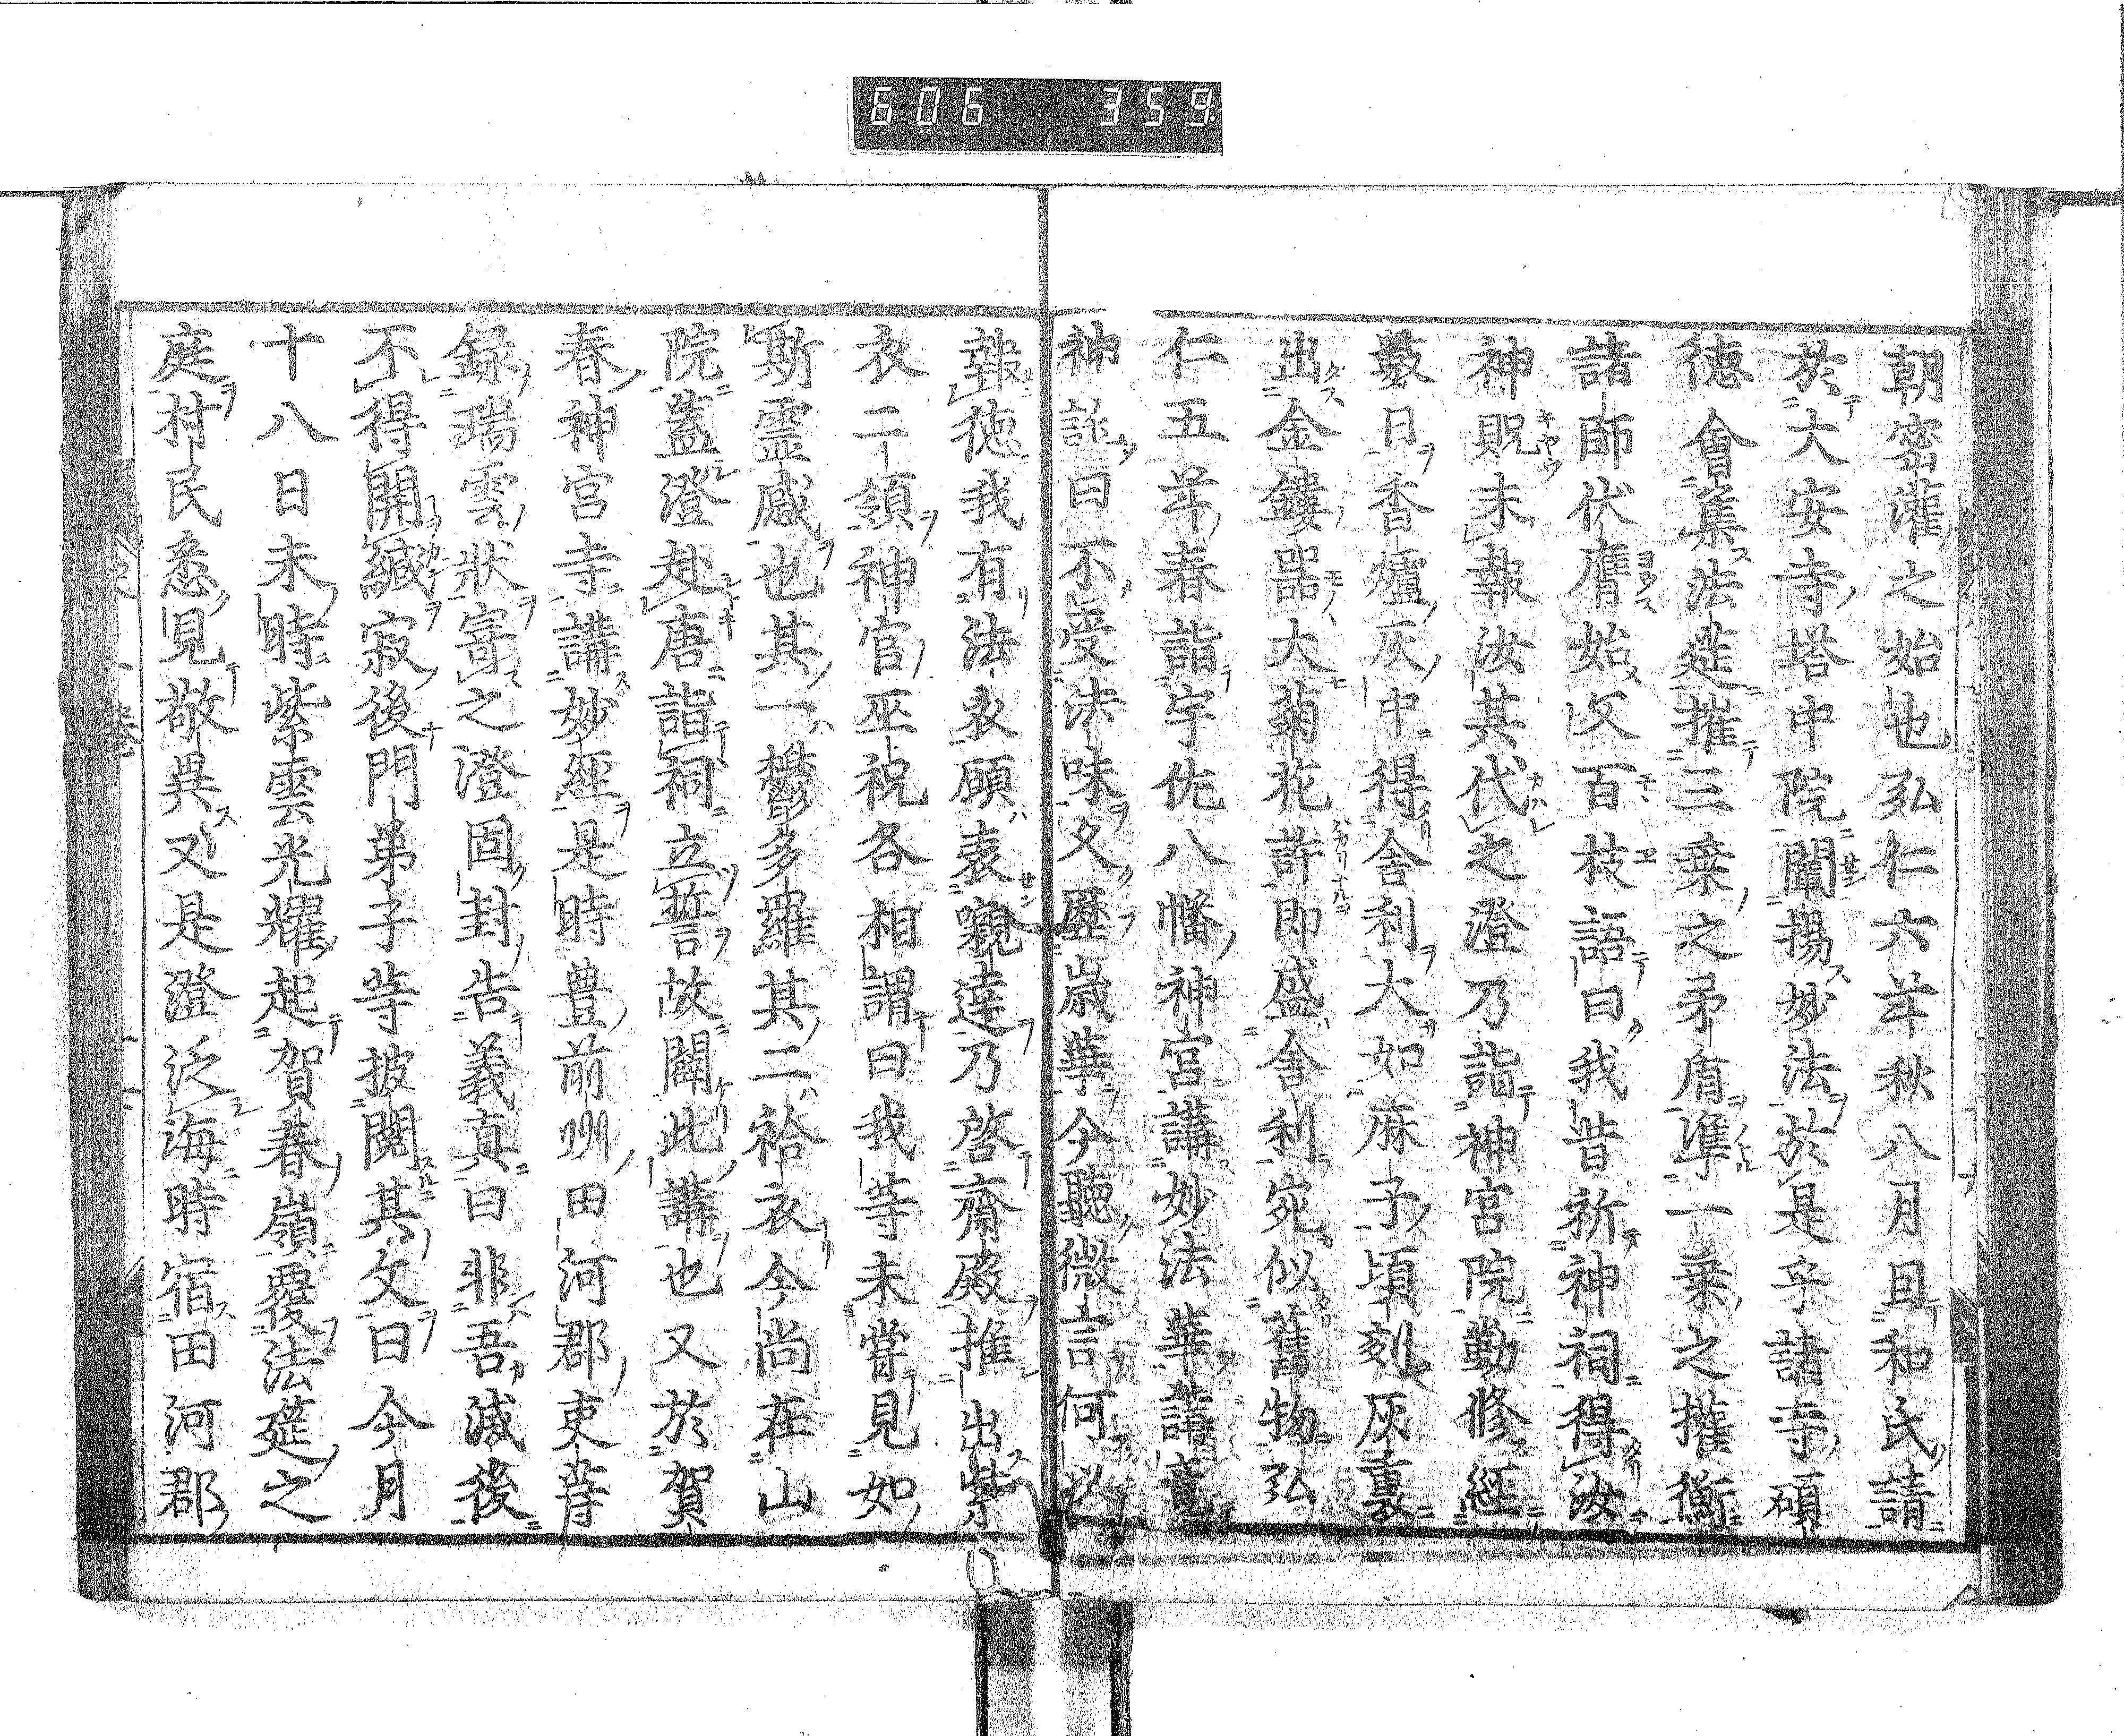 606 359
朝密灌之始也弘仁六年秋八月且和氏請
於大安寺塔中院闡揚妙法於是乎諸寺碩
徳會集法莚摧三乗之矛盾準一乗之權衡
諸師伏膺始父百枝語曰我昔祈神祠得汝
神貺未報汝其代之澄乃詣神宮院勤修經
數日香爐灰中得舍利大如麻子頃刻灰裏
出金鏤器大菊花許即盛舍利宛似舊物弘
仁五年春詣宇佐八幡神宮講妙法華講竟
神託曰不受法味久歴歳華今聽微言何以
報徳我有法衣願表嚫達乃啓齋殿推出紫
衣二領神官巫祝各相謂曰我等未嘗見如
斯靈感也其一欝多羅其二袷衣今尚在山
院蓋澄赴唐詣祠立誓故闢此講也又於賀
春神宮寺講妙經是時豊前州田河郡吏等
録瑞雲狀寄之澄固封告義真曰非吾滅後
不得開緘寂後門弟子等披閲其文曰今月
十八日未時紫雲光耀起賀春嶺覆法莚之
庭村民悉見敬異又是澄泛海時宿田河郡